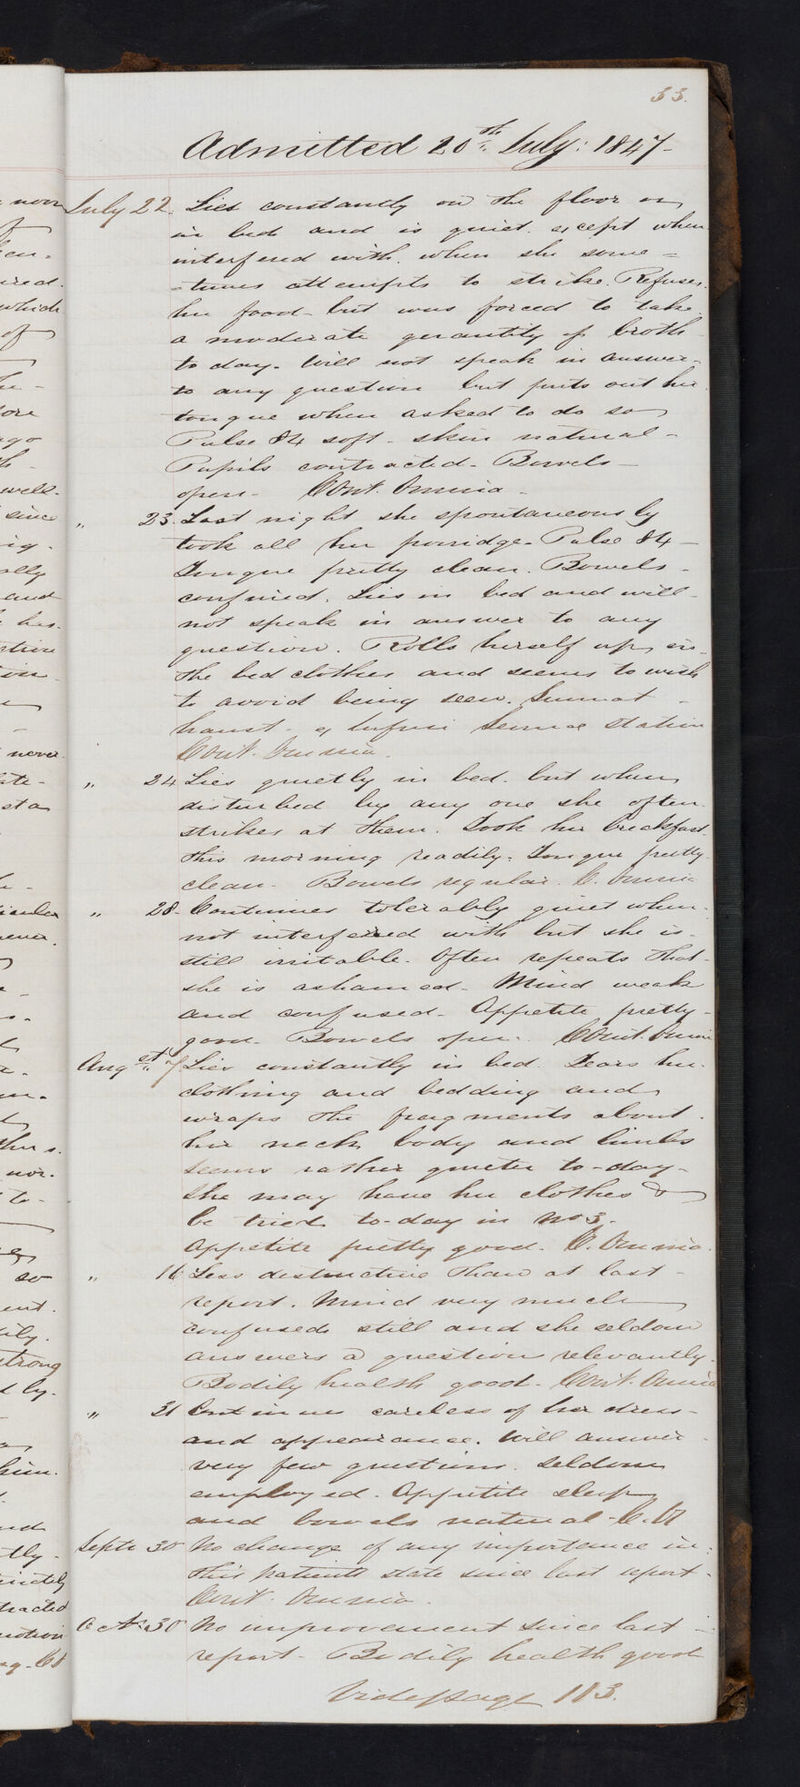 33.
Admitted 20th July: 1847-
July 22. Lies constantly on the floor or
in bed and is quiet. except when
interfered with. when she some=
=times attempts to strike. Refuses
her food- but was forced to take
a moderate quantity of broth
to day. Will not speak in answer
to any question but puts out her
tongue when asked to do so
Pulse 84 soft- skin natural-
Pupils contracted- Bowels-
open- Cont. Omnia-
" 23. Last night she spontaneously
took all her porridge- Pulse 84-
Tongue pretty clean. Bowels-
confined. Lies in bed and will-
not speak in answer to any
question. Rolls herself up in-
the bed clothes and seems to wish
to avoid being seen. Sumat-
haust- Infusi Sennae statim
Cont. Omnia.
" 24 Lies quietly in bed. but when
disturbed by any one she often
strikes at them. Took her breakfast
this morning readily. Tongue pretty
clean- Bowels regular. C. Omnia
" 28- Continues tolerably quiet when
not interfered with but she is-
still irritable. Often repeats that-
she is ashamed- Mind weak
and confused- Appetite pretty-
good- Bowels open- Cont. Omnia
Augst 7 Lies constantly in bed. Tears her
clothing and bedding and
wraps the fragments about.
her neck, body and limbs
seems rather quieter to-day-
She may have her clothes &
be tried to-day in No 3.
Appetite pretty good- C. Omnia.
" 16 Less destructive than at last-
report. Mind very much
confused still and she seldom
answers a question relevantly.
Bodily health good- Cont. Omnia
" 31 Continues careless of her dress-
and appearance. Will answer
very few questions. Seldom
employed- Appetite sleep
and bowels natural- C.
Septr 30 No change of any importance in
this patients state since last report-
Cont. Omnia.
Octr. 30 No improvement since last-
report- Bodily health good
Vide page 183.